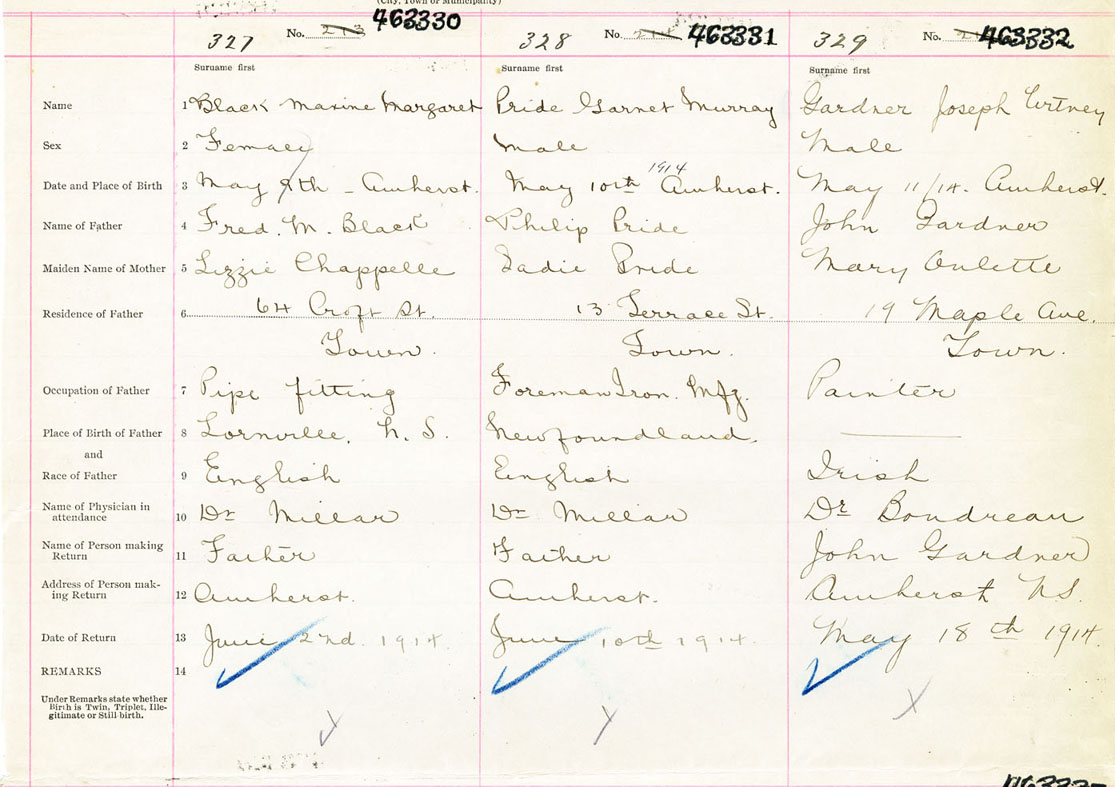 (City, Town or Municipality)
327 No. 213 463330 328 No. 214 463331 329 No. 463332
Surname first Surname first Surname first
Name 1 Black Maxine Margaret Pride Garnet Murray Gardner Joseph
Sex 2 Female Male Male
Date and Place of Birth 3 May 9th - Amherst. May 10th 1914 Amherst. May 11/14. Amherst.
Name of Father 4 Fred. M. Black Philip Pride John Gardner
Maiden Name of Mother 5 Lizzie Chappelle Sadie Pride Mary Oulette
Residence of Father 6 64 Croft St. 13 Terrace St. 19 Maple Ave.
Town. Town. Town.
Occupation of Father 7 Pipe fitting Foreman Iron. Mfg. Painter
Place of Birth of Father 8 Lornville, N. S. Newfoundland.
and
Race of Father 9 English English Irish
Name of Physician in
attendance 10 Dr Millar Dr Millar Dr Boudreau
Name of Person making
Return 11 Father Father John Gardner
Address of Person mak-
ing Return 12 Amherst. Amherst. Amherst N.S.
Date of Return 13 June 2nd. 1914. June 10th 1914. May 18th 1914.
REMARKS 14
Under Remarks state whether
Birth is Twin, Triplet, Ille-
gitimate or Still birth.